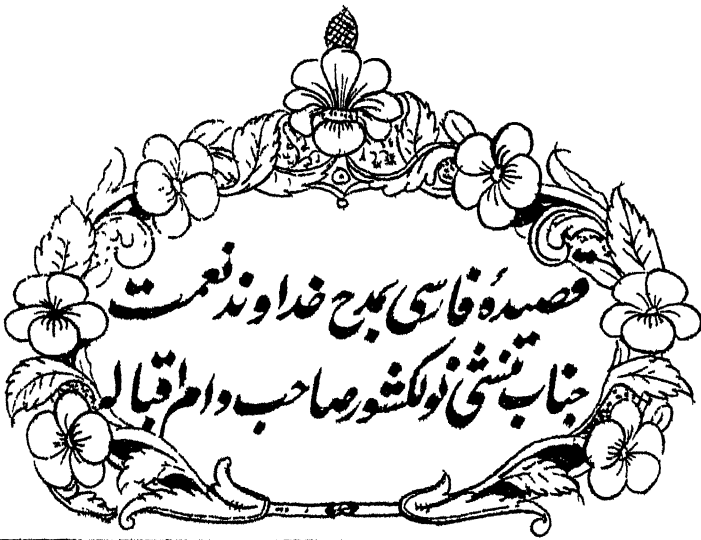 قصیدهٔ فارسی بمدح خداوند نعمت
جناب منشی نولکشور صاحب دام اقباله